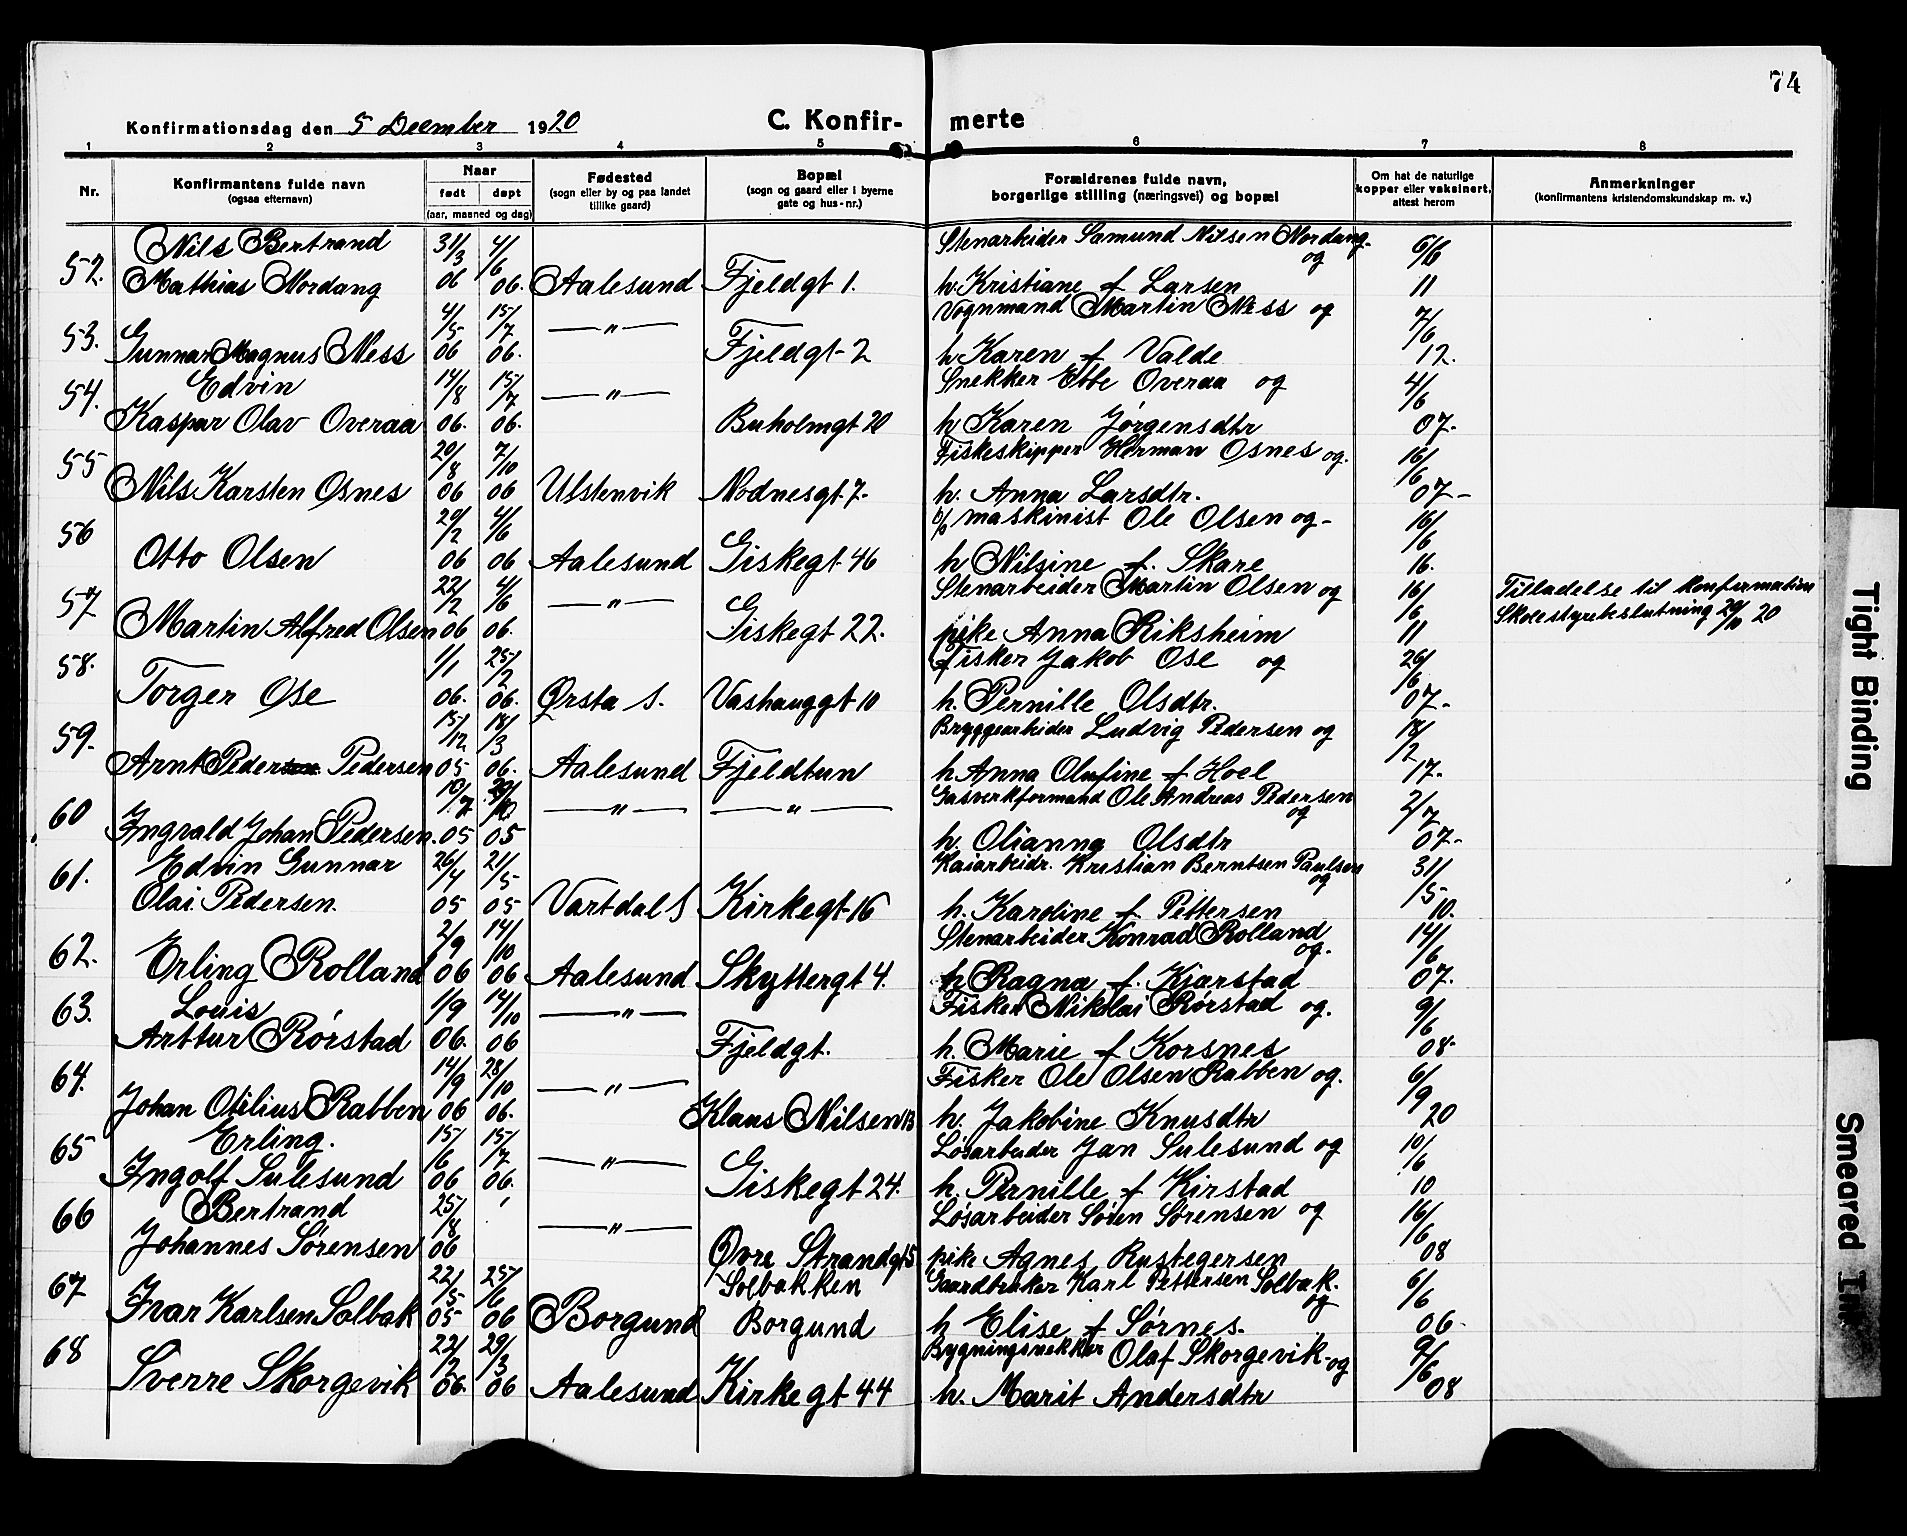 74
Konfirmationsdag den 5 Deember 1920
C. Konfir- merte
1 2 3 4 5 6 7 8
Nr.
Konfirmantens fulde navn
(ogsaa efternavn)
Naar
født døpt
(aar, maaned og dag)
Fødested
(sogn eller by og paa landet
tillike gaard)
Bopæl
(sogn og gaard eller i byerne
gate og hus-nr.)
Forældrenes fulde navn,
borgerlige stilling (næringsvei) og bopæl
Om hat de naturlige
kopper eller vaksinert,
attest herom
Anmerkninger
(konfirmantens kristendomskundskap m. v.)
Nils Bertrand 31/3 4/6 Stenarbeider Samund Nilsen Nordang og 6/6
52. Mathias Nordang 06 06. Aalesund Fjeldgt 1. h. Kristiane f Larsen 11
4/5 15/7 Vognmand Martin Ness og 7/6
53. Gunnar Magnus Ness 06 06. —"— Fjeldgt-2 h Karen f Valde 12.
Edvin 14/8 15/7 Snekker Ebbe Overaa og 4/6
54. Kaspar Olav Overaa 06. 06. —"— Buholmgt 20 h Karen Jørgensdtr 07.
20/8 7/10 Fiskeskipper Herman Osnes og. 16/6
55 Nils Karsten Osnes 06 06 Ulstenvik Nodnesgt 7. h. Anna Larsdtr. 07-
20/2 4/6 maskinist Ole Olsen og- 16/6
56 Otto Olsen 06 06 Aalesund Giskegt 46 h Nilsine f. Skare 16.
22/2 4/6 Stenarbeider Martin Olsen og 16/6 Tilladelse til konfirmation
57 Martin Alfred Olsen 06 06. —"— Giskegt 22. pike Anna Riksheim 11 Skolestyrebeslutning 29/10 20
1/1 25/2 Fisker Jakob Ose og 26/6
58. Torger Ose 06. 06. Ørsta S. Vashauggt 10 h. Pernille Olsdtr. 07-
15/12 18/3 Bryggearbeider Ludvig Pedersen og 18/2
59. Arnt Pedersen Pedersen 05 06. Aalesund Fjeldtun h Anna Olufine f Hoel 17.
10/7 Gasverkformand Ole Andreas Pedersen og 2/7
60 Ingvald Johan Pedersen. 05 05 —"— —"— h. Olianna Olsdtr 07-
Edvin Gunnar 26/4 21/5 Kaiarbeidr. Kristian Berntsen Paulsen og 31/5
61. Olai Pedersen 05 05 Vartdal S Kirkegt-16 h. Karoline f Pettersen 10.
2/9 14/10 Stenarbeider Konrad Rolland og. 14/6
62. Erling Rolland 06 06 Aalesund Skyttergt 4. h Ragna f. Kjørstad 07.
Louis 1/9 14/10 Fisker Nikolai Rørstad og. 9/6
63. Arttur Rørstad 06. 06 —"— Fjeldgt. h. Marie f Korsnes 08-
14/9 28/10 Fisker Ole Olsen Rabben og. 6/9
64. Johan Otilius Rabben 06 06. —"— Klaus Nilsen 13 h. Jakobine Knusdtr 20
Erling. 15/6 15/7 Løsarbeider Jan Sulesund og 10/6
65 Ingolf Sulesund 06 06. —"— Giskegt 24. h. Pernille f Kirstad 10
Bertrand 25/8 Løsarbeider Søren Sørensen og 16/6
66 Johannes Sørensen 06 —"— Øvre Strandgt 5 pike Agnes Rustegersen 08
22/5 25/6 Solbakken Gaardbruker Karl Pettersen Solbak. og 6/6
67 Ivar Karlsen Solbak 05 06 Borgund Borgund h Elise f Sørnes. 06-
22/2 29/3 Bygningssnekker Olaf Skorgevik-og 9/6
68 Sverre Skorgevik 06. 06 Aalesund Kirkegt 44 h. Marit Andersdtr 08
Tight Binding
Smeared Ink